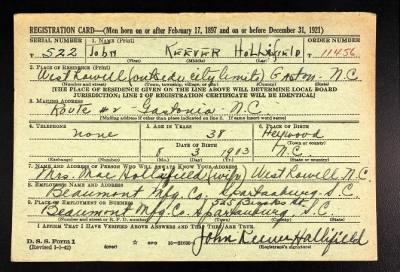 REGISTRATION CARD—(Men born on or after February 17, 1897 and on or before December 31, 1921)
SERIAL NUMBER 1. NAME (Print) ORDER NUMBER
T 522 John KEEVER Hollifield T 11456
(First) (Middle) (Last)
2. PLACE OF RESIDENCE (Print)
West Lowell (outside city limits) Gaston N.C.
(Number and street) (Town, township, village, or city) (County) (State)
[THE PLACE OF RESIDENCE GIVEN ON THE LINE ABOVE WILL DETERMINE LOCAL BOARD
JURISDICTION; LINE 2 OF REGISTRATION CERTIFICATE WILL BE IDENTICAL]
3. MAILING ADDRESS
Route #2 Gastonia N.C.
[Mailing address if other than place indicated on line 2. If same insert word same]
4. TELEPHONE 5. AGE IN YEARS 6. PLACE OF BIRTH
none 38 Heywood
DATE OF BIRTH (Town or county)
8 3 1903 N.C.
(Exchange) (Number) (Mo.) (Day) (Yr.) (State or country)
7. NAME AND ADDRESS OF PERSON WHO WILL ALWAYS KNOW YOUR ADDRESS
Mrs. Mae Hollifield (wife) West Lowell, N.C.
8. EMPLOYER'S NAME AND ADDRESS
Beaumont Mfg. Co. Spartanburg S.C.
9. PLACE OF EMPLOYMENT OR BUSINESS
Beaumont Mfg. Co. Spartanburg, S.C.
(Number and street or R. F. D. number) (Town) (County) (State)
I AFFIRM THAT I HAVE VERIFIED ABOVE ANSWERS AND THAT THEY ARE TRUE.
D. S. S. Form 1
John Keever Hollifield
(Registrant's signature)